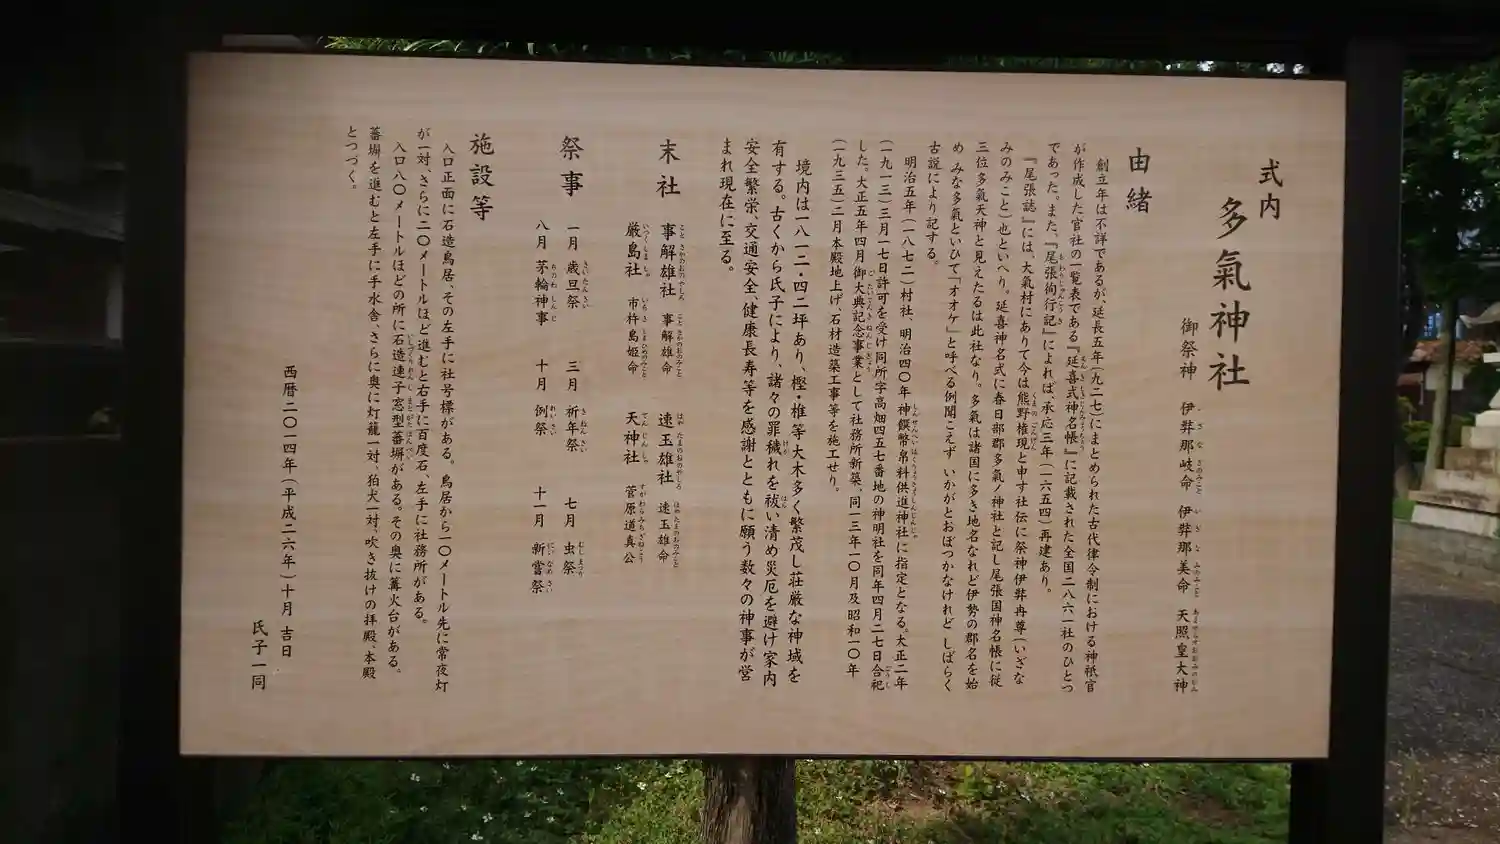 式内
多氣神社
御祭神 伊弉那岐命 伊弉那美命 天照皇大神
由緒
創立年は不詳であるが、延長五年(九二七)にまとめられた古代律令制における神祇官
が作成した官社の一覧表である『延喜式神名帳』に記載された全国二八六一社のひとつ
であった。また、『尾張徇行記』によれば、承応三年(一六五四)再建あり。
『尾張誌』には、大氣村にありて今は熊野権現と申す社伝に祭神伊弉冉尊(いざな
みのみこと)也といへり。延喜神名式に春日部郡多氣ノ神社と記し尾張国神名帳に従
三位多氣天神と見えたるは此社なり。多氣は諸国に多き地名なれど伊勢の郡名を始
め みな多氣といひて「オオケ」と呼べる例聞こえず いかがとおぼつかなけれど しばらく
古説により記する。
明治五年(一八七二)村社、明治四〇年 神饌幣帛料供進神社に指定となる。大正二年
(一九一三)三月一七日許可を受け同所字高畑四五七番地の神明社を同年四月二七日合祀
した。大正五年四月 御大典記念事業として社務所新築、同一三年一〇月及昭和一〇年
(一九三五)二月本殿地上げ、石材造築工事等を施工せり。
境内は一八一二・四二坪あり、樫・椎等大木多く繁茂し荘厳な神域を
有する。古くから氏子により、諸々の罪穢れを祓い清め災厄を避け家内
安全繁栄、交通安全、健康長寿等を感謝とともに願う数々の神事が営
まれ現在に至る。
末社
事解雄社 事解雄命 速玉雄社 速玉雄命
厳島社 市杵島姫命 天神社 菅原道真公
祭事
一月 歳旦祭 三月 祈年祭 七月 虫祭
八月 茅輪神事 十月 例祭 十一月 新嘗祭
施設等
入口正面に石造鳥居、その左手に社号標がある。鳥居から一〇メートル先に常夜灯
が一対、さらに二〇メートルほど進むと右手に百度石、左手に社務所がある。
入口八〇メートルほどの所に石造連子窓型蕃塀がある。その奥に篝火台がある。
蕃塀を進むと左手に手水舎、さらに奥に灯籠一対、狛犬一対、吹き抜けの拝殿、本殿
とつづく。
西暦二〇一四年(平成二六年)十月 吉日
氏子一同